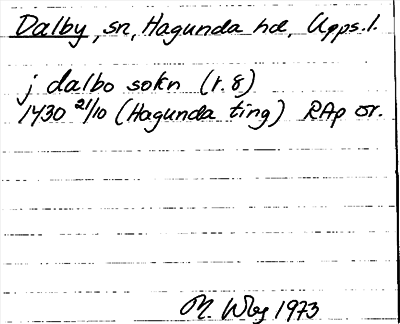 Dalby, sn, Hagunda hd, Upps. l.
j dalbo sokn (r. 8)
1430 21/10 (Hagunda ting) RAp or.
M. Wbg 1973